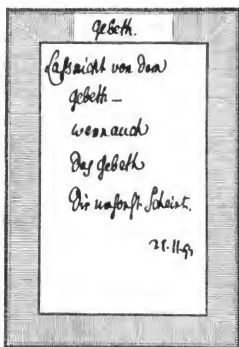 Gebeth.
Lass nicht von dem
gebeth –
wenn auch
das gebeth
Dir umsonst Scheint.
21.11.